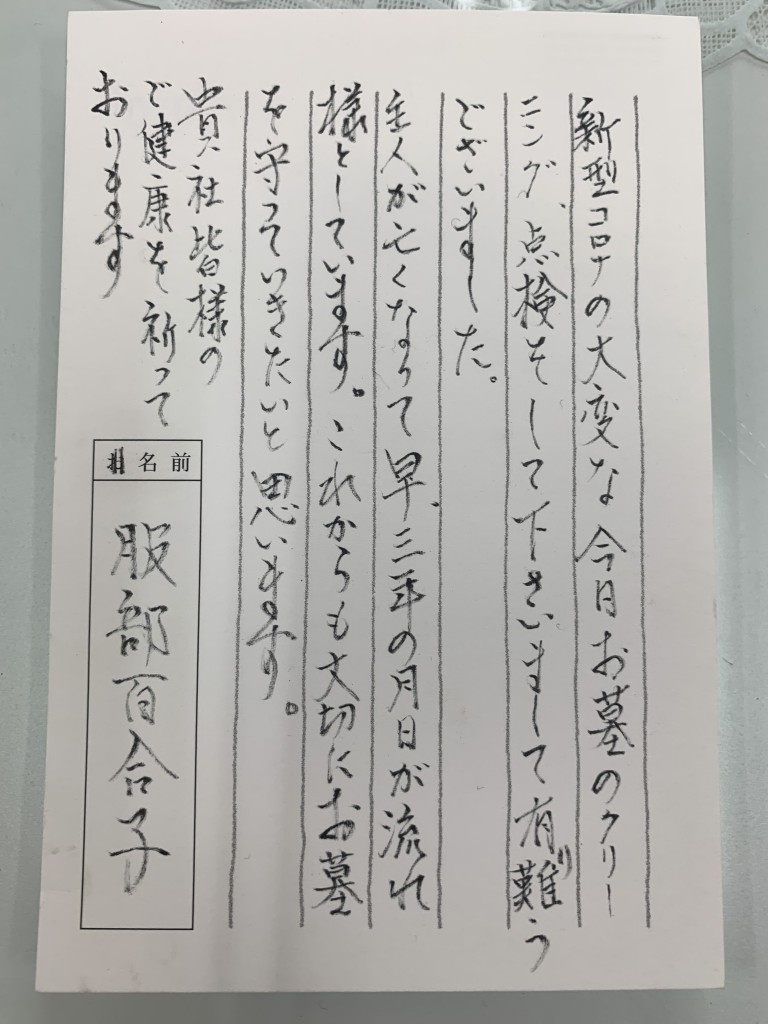 新型コロナの大変な今日お墓のクリー
ニング、点検をして下さいまして有難う
り
ございました。
主人が亡くなって早、三年の月日が流れ
様としています。これからも大切にお墓
を守っていきたいと思います。
貴社皆様の
ご健康を祈って
おります
名前
服部百合子